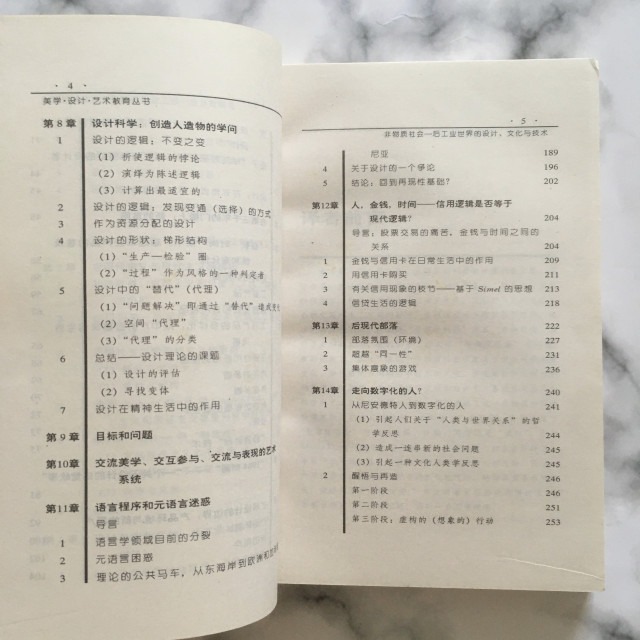 · 4 ·
美学·设计·艺术教育丛书
第8章 设计科学：创造人造物的学问
1 设计的逻辑：不变之变
(1) 祈使逻辑的悖论
(2) 演绎为陈述逻辑
(3) 计算出最适宜的
2 设计的逻辑：发现变通（选择）的方式
3 作为资源分配的设计
4 设计的形状：梯形结构
(1) “生产—检验”圈
(2) “过程”作为风格的一种判定者
5 设计中的“替代”(代理)
(1) “问题解决”即通过“替代”造成
(2) 空间“代理”
(3) “代理”的分类
6 总结——设计理论的课题
(1) 设计的评估
(2) 寻找变体
7 设计在精神生活中的作用
第9章 目标和问题
第10章 交流美学、交互参与、交流与表现的艺术
系统
第11章 语言程序和元语言迷惑
导言
1 语言学领域目前的分裂
2 元语言困惑
3 理论的公共马车，从东海岸到欧洲和
· 5 ·
非物质社会—后工业世界的设计、文化与技术
尼亚 189
4 关于设计的一个争论 196
5 结论：回到再现性基础？ 202
第12章 人、金钱、时间——信用逻辑是否等于
现代逻辑？ 204
导言：股票交易的痛苦，金钱与时间之间的
关系 204
1 金钱与信用卡在日常生活中的作用 209
2 用信用卡购买 211
3 有关信用现象的枝节——基于 Simel 的思想 213
4 信贷生活的逻辑 218
第13章 后现代部落 222
1 部落氛围（环境） 227
2 超越“同一性” 231
3 集体意象的游戏 236
第14章 走向数字化的人？ 240
1 从尼安德特人到数字化的人 241
(1) 引起人们关于“人类与世界关系”的哲
学反思 244
(2) 造成一连串新的社会问题 245
(3) 引起一种文化人类学反思 245
2 醒悟与再造 246
第一阶段 246
第二阶段 251
第三阶段：虚构的（想象的）行动 253